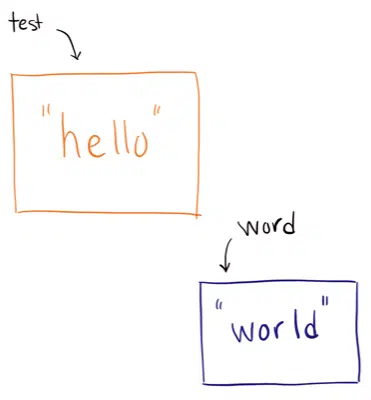 test
"hello"
word
"world"